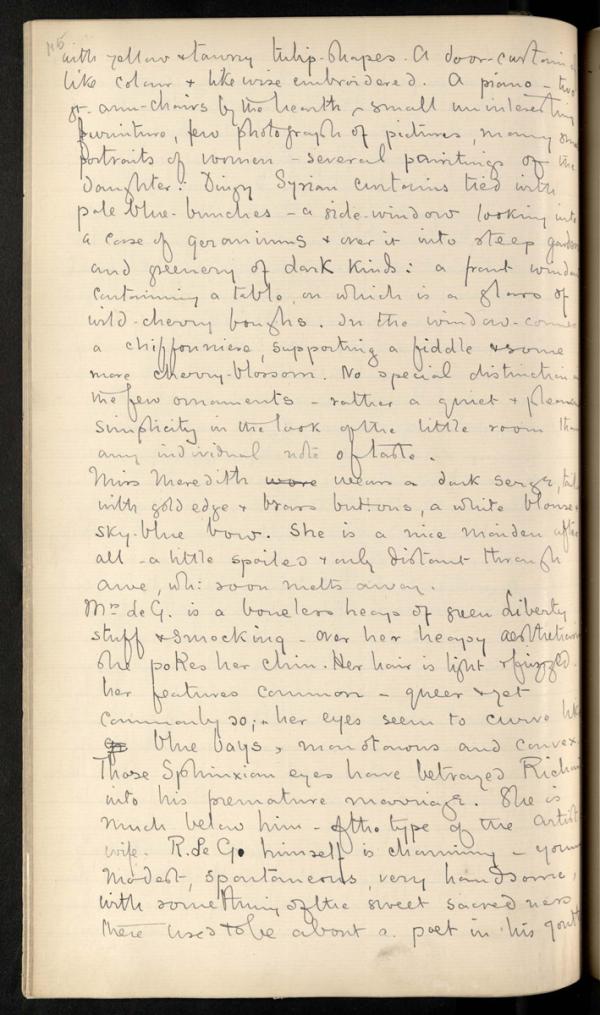 115
with yellow & tawny tulip-shapes. A door-curtain of
like colour & likewise embroidered. A piano – two
gr. arm-chairs by the hearth, small uninteresting
furniture, few photograph of pictures, many
portraits of women – several paintings of the
daughter: Dingy Syrian curtains tied with
pale blue-bunches – a side-window looking into
a case of geraniums & over it into steep garden
and greenery of dark kinds: a front window
containing a table, on which is a glass of
wild-cherry boughs. In the window-corner
a chiffonniere, supporting a fiddle & some
more cherry-blossom. No special distinction in
the few ornaments – rather a quiet &
simplicity in the look of the little room than
any individual note of taste.
Miss Meredith wore wears a dark serge,
with gold edge & brass buttons, a white blouse &
sky-blue bow. She is a nice maiden after
all – a little spoiled & only distant through
awe, wh: soon melts away.
Mrs de G. is a boneless heap of green Liberty
stuff & smocking – over her heapy
she pokes her chin. Her hair is light & frizzled.
her features common – queer & yet
commonly so; – her eyes seem to curve like
blue bays, monotonous and convex.
Those Sphinxian eyes have betrayed Richard
into his premature marriage. She is
much below him – of the type of the artist's
wife. R. Le G. himself is charming – young
modest, spontaneous, very handsome,
with something of the sweet sacredness
there used to be about a poet in his youth